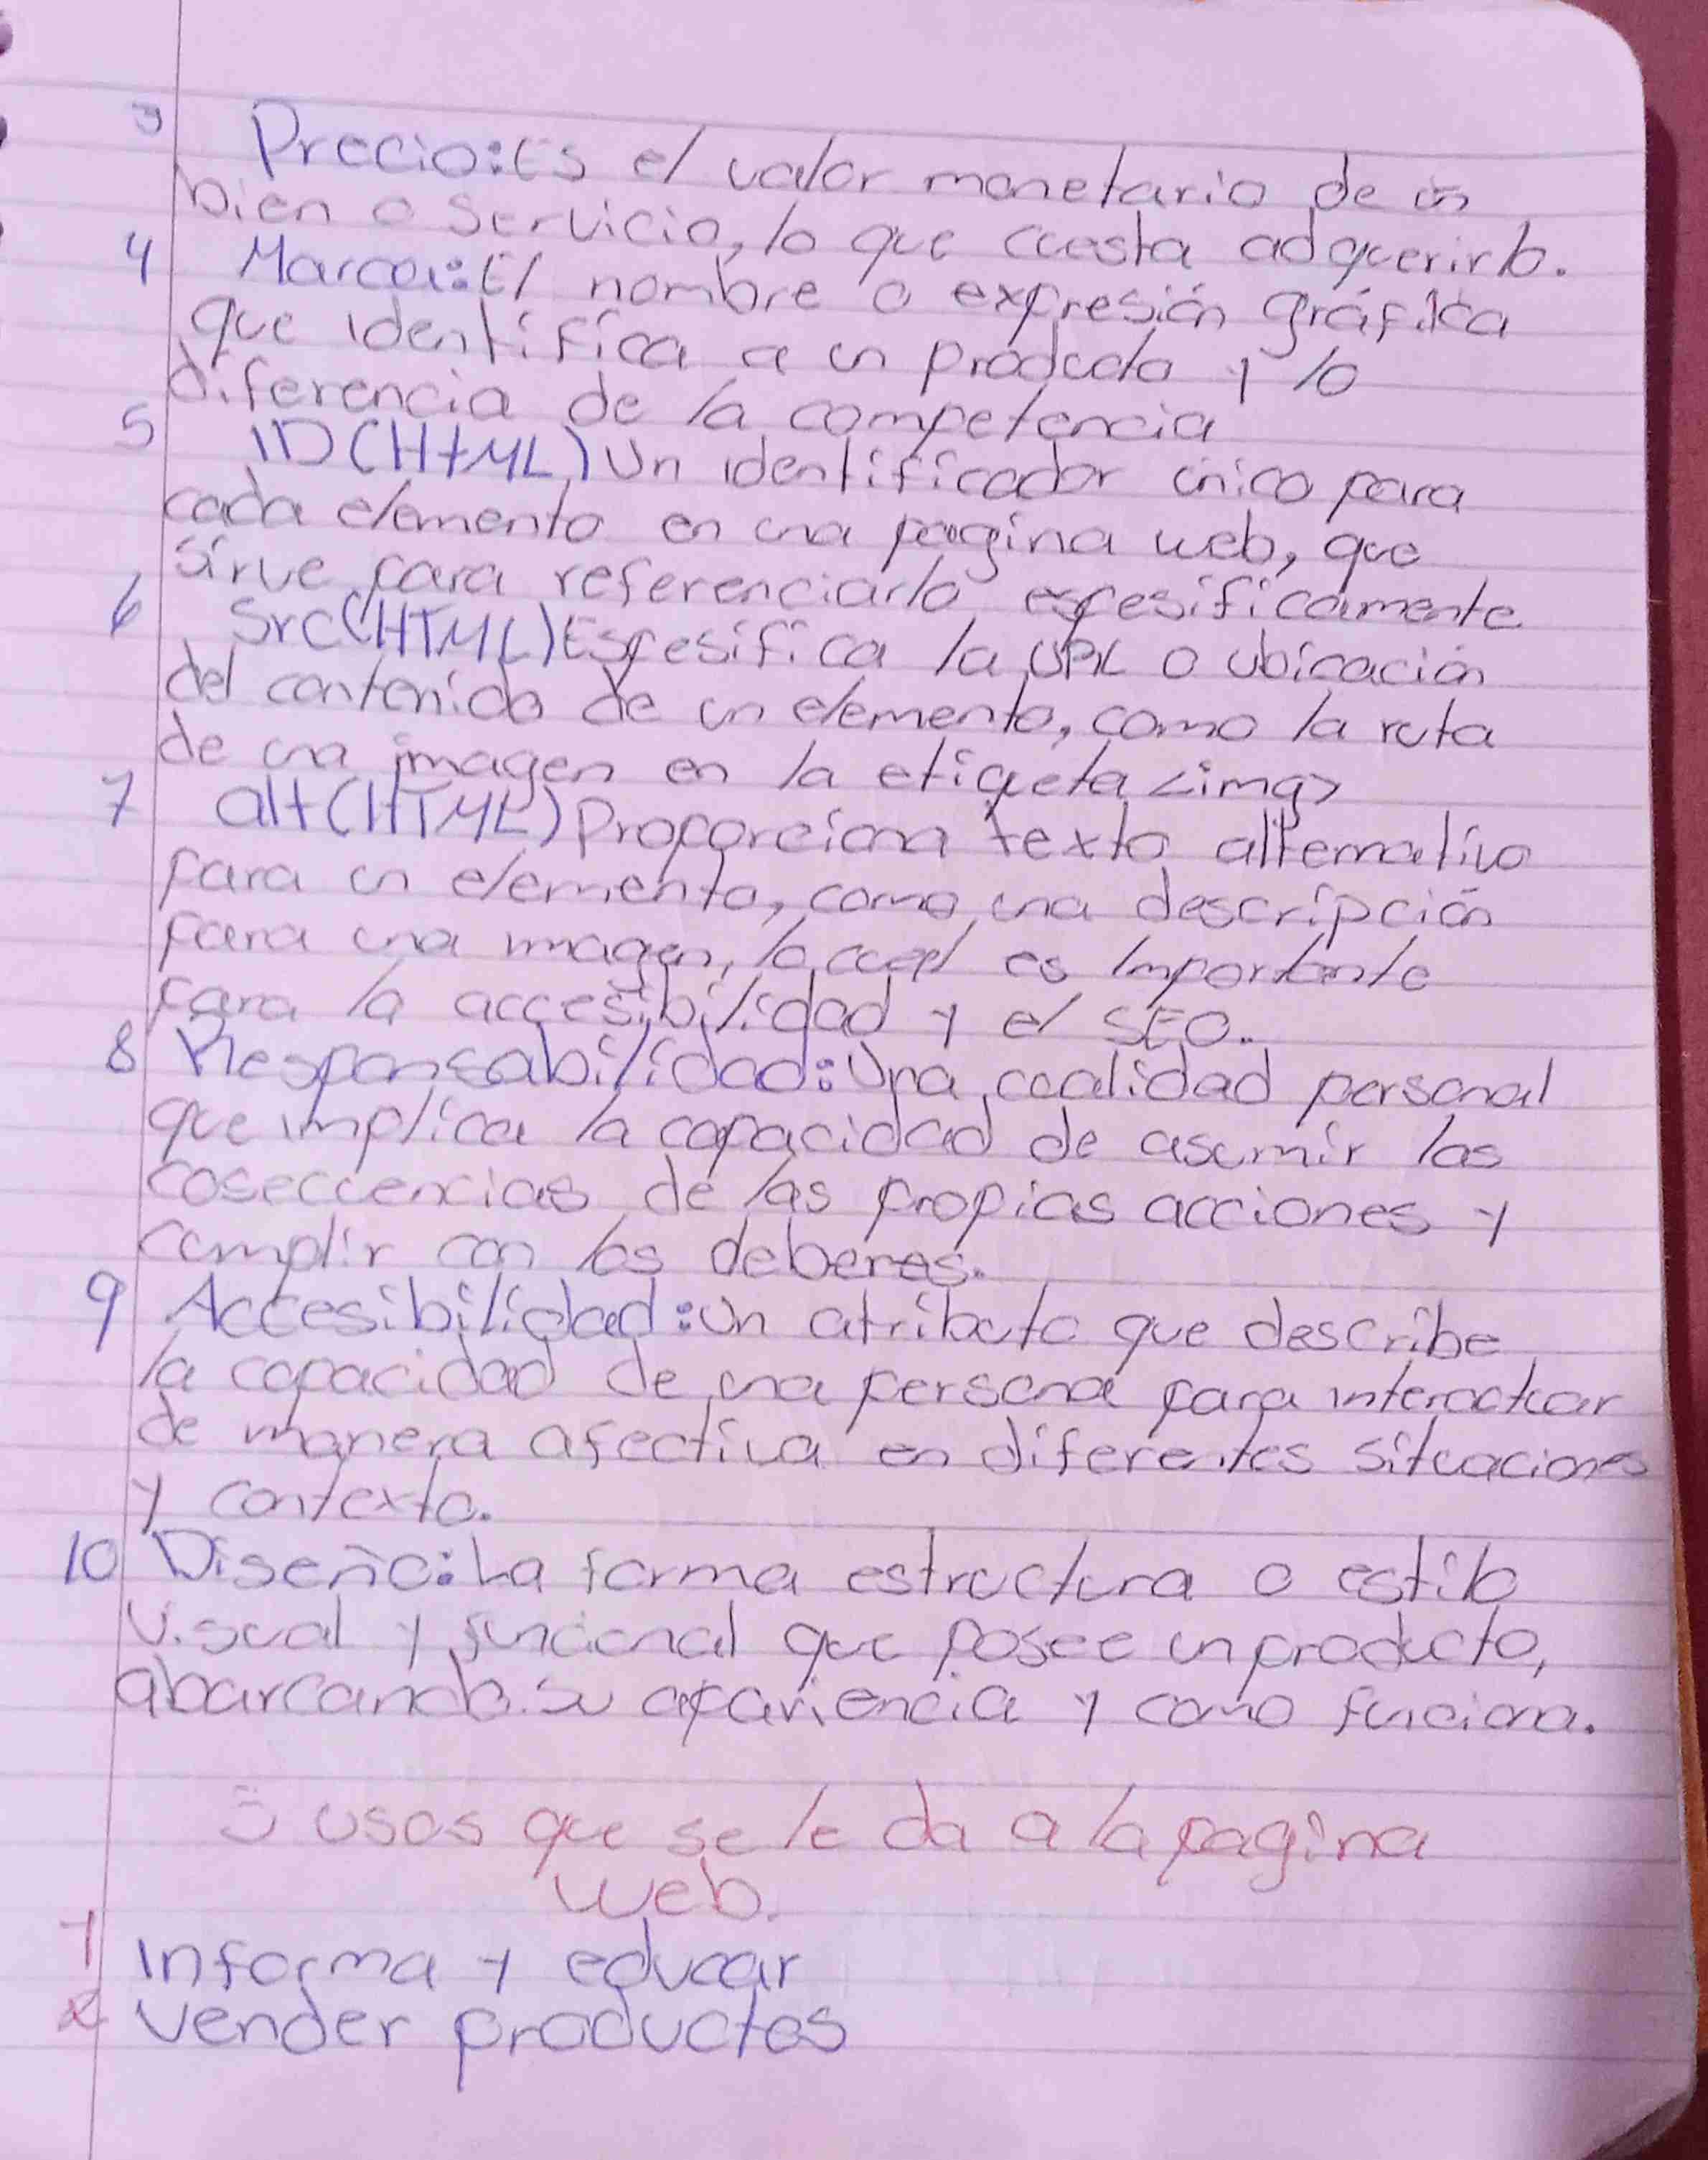 3 Precio: Es el valor monetario de un
bien o servicio, lo que cuesta adquerirlo.
4 Marca: El nombre o expresión gráfica
que identifica a un producto y lo
diferencia de la competencia
5 ID (HtML) Un identificador único para
cada elemento en una pagina web, que
sirve para referenciarlo espesificamente
6 Src (HTML) Espesifica la URL o ubicación
del contenido de un elemento, como la ruta
de una imagen en la etiqueta <img>
7 alt (HTML) Proporciona texto alternativo
para un elemento, como una descripción
para una imagen, lo cual es importante
para la accesibilidad y el SEO.
8 Responsabilidad: Una cualidad personal
que implica la capacidad de asumir las
cosecuencias de las propias acciones y
cumplir con los deberes.
9 Accesibilidad: Un atributo que describe
la capacidad de una persona para interactuar
de manera afectiva en diferentes situaciones
y contexto.
10 Diseño: La forma estructura o estilo
visual y funcional que posee un producto,
abarcando su apariencia y como funciona.
5 usos que se le da a la pagina
web.
1 Informa y educar
2 Vender productos